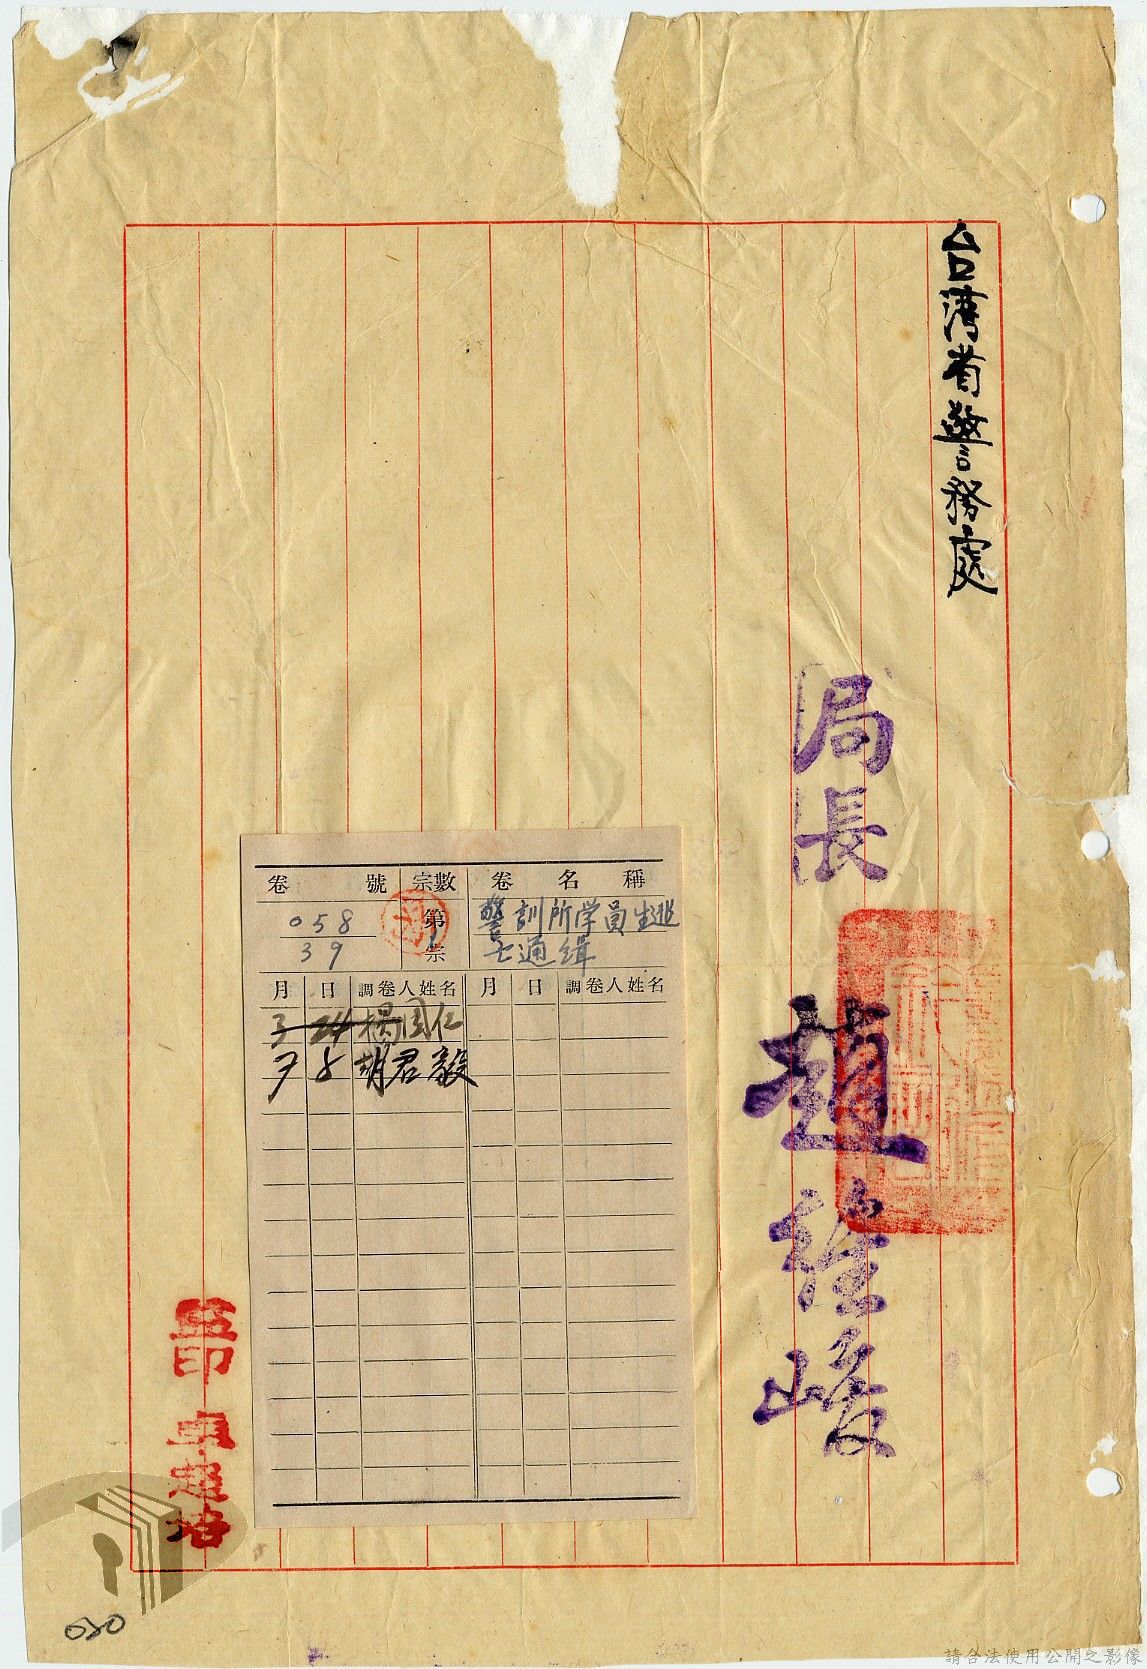 台湾省警务處
局長 趙雄峻
卷 號 宗數 卷 名 稱
058
39
第 宗
警訓所学員生逃亡通缉
月 日 調卷人姓名 月 日 調卷人姓名
3 24 楊國仁
7 5 胡君毅
監印 卓超
030
請合法使用公開之影像